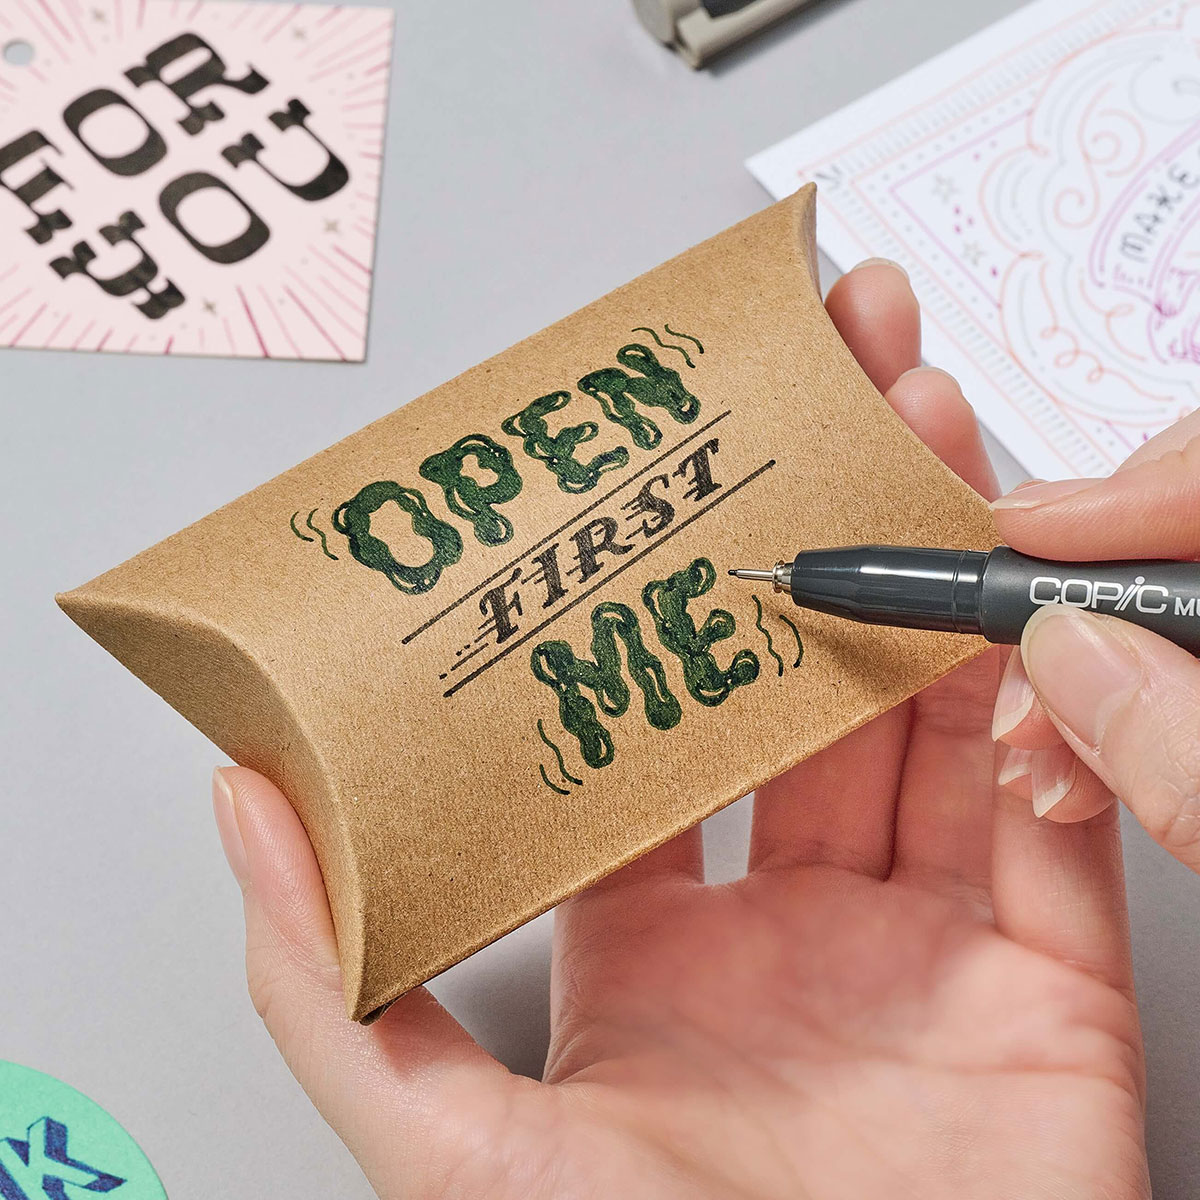 FOR
YOU
OPEN
FIRST
ME
COPIC
MAKE
K